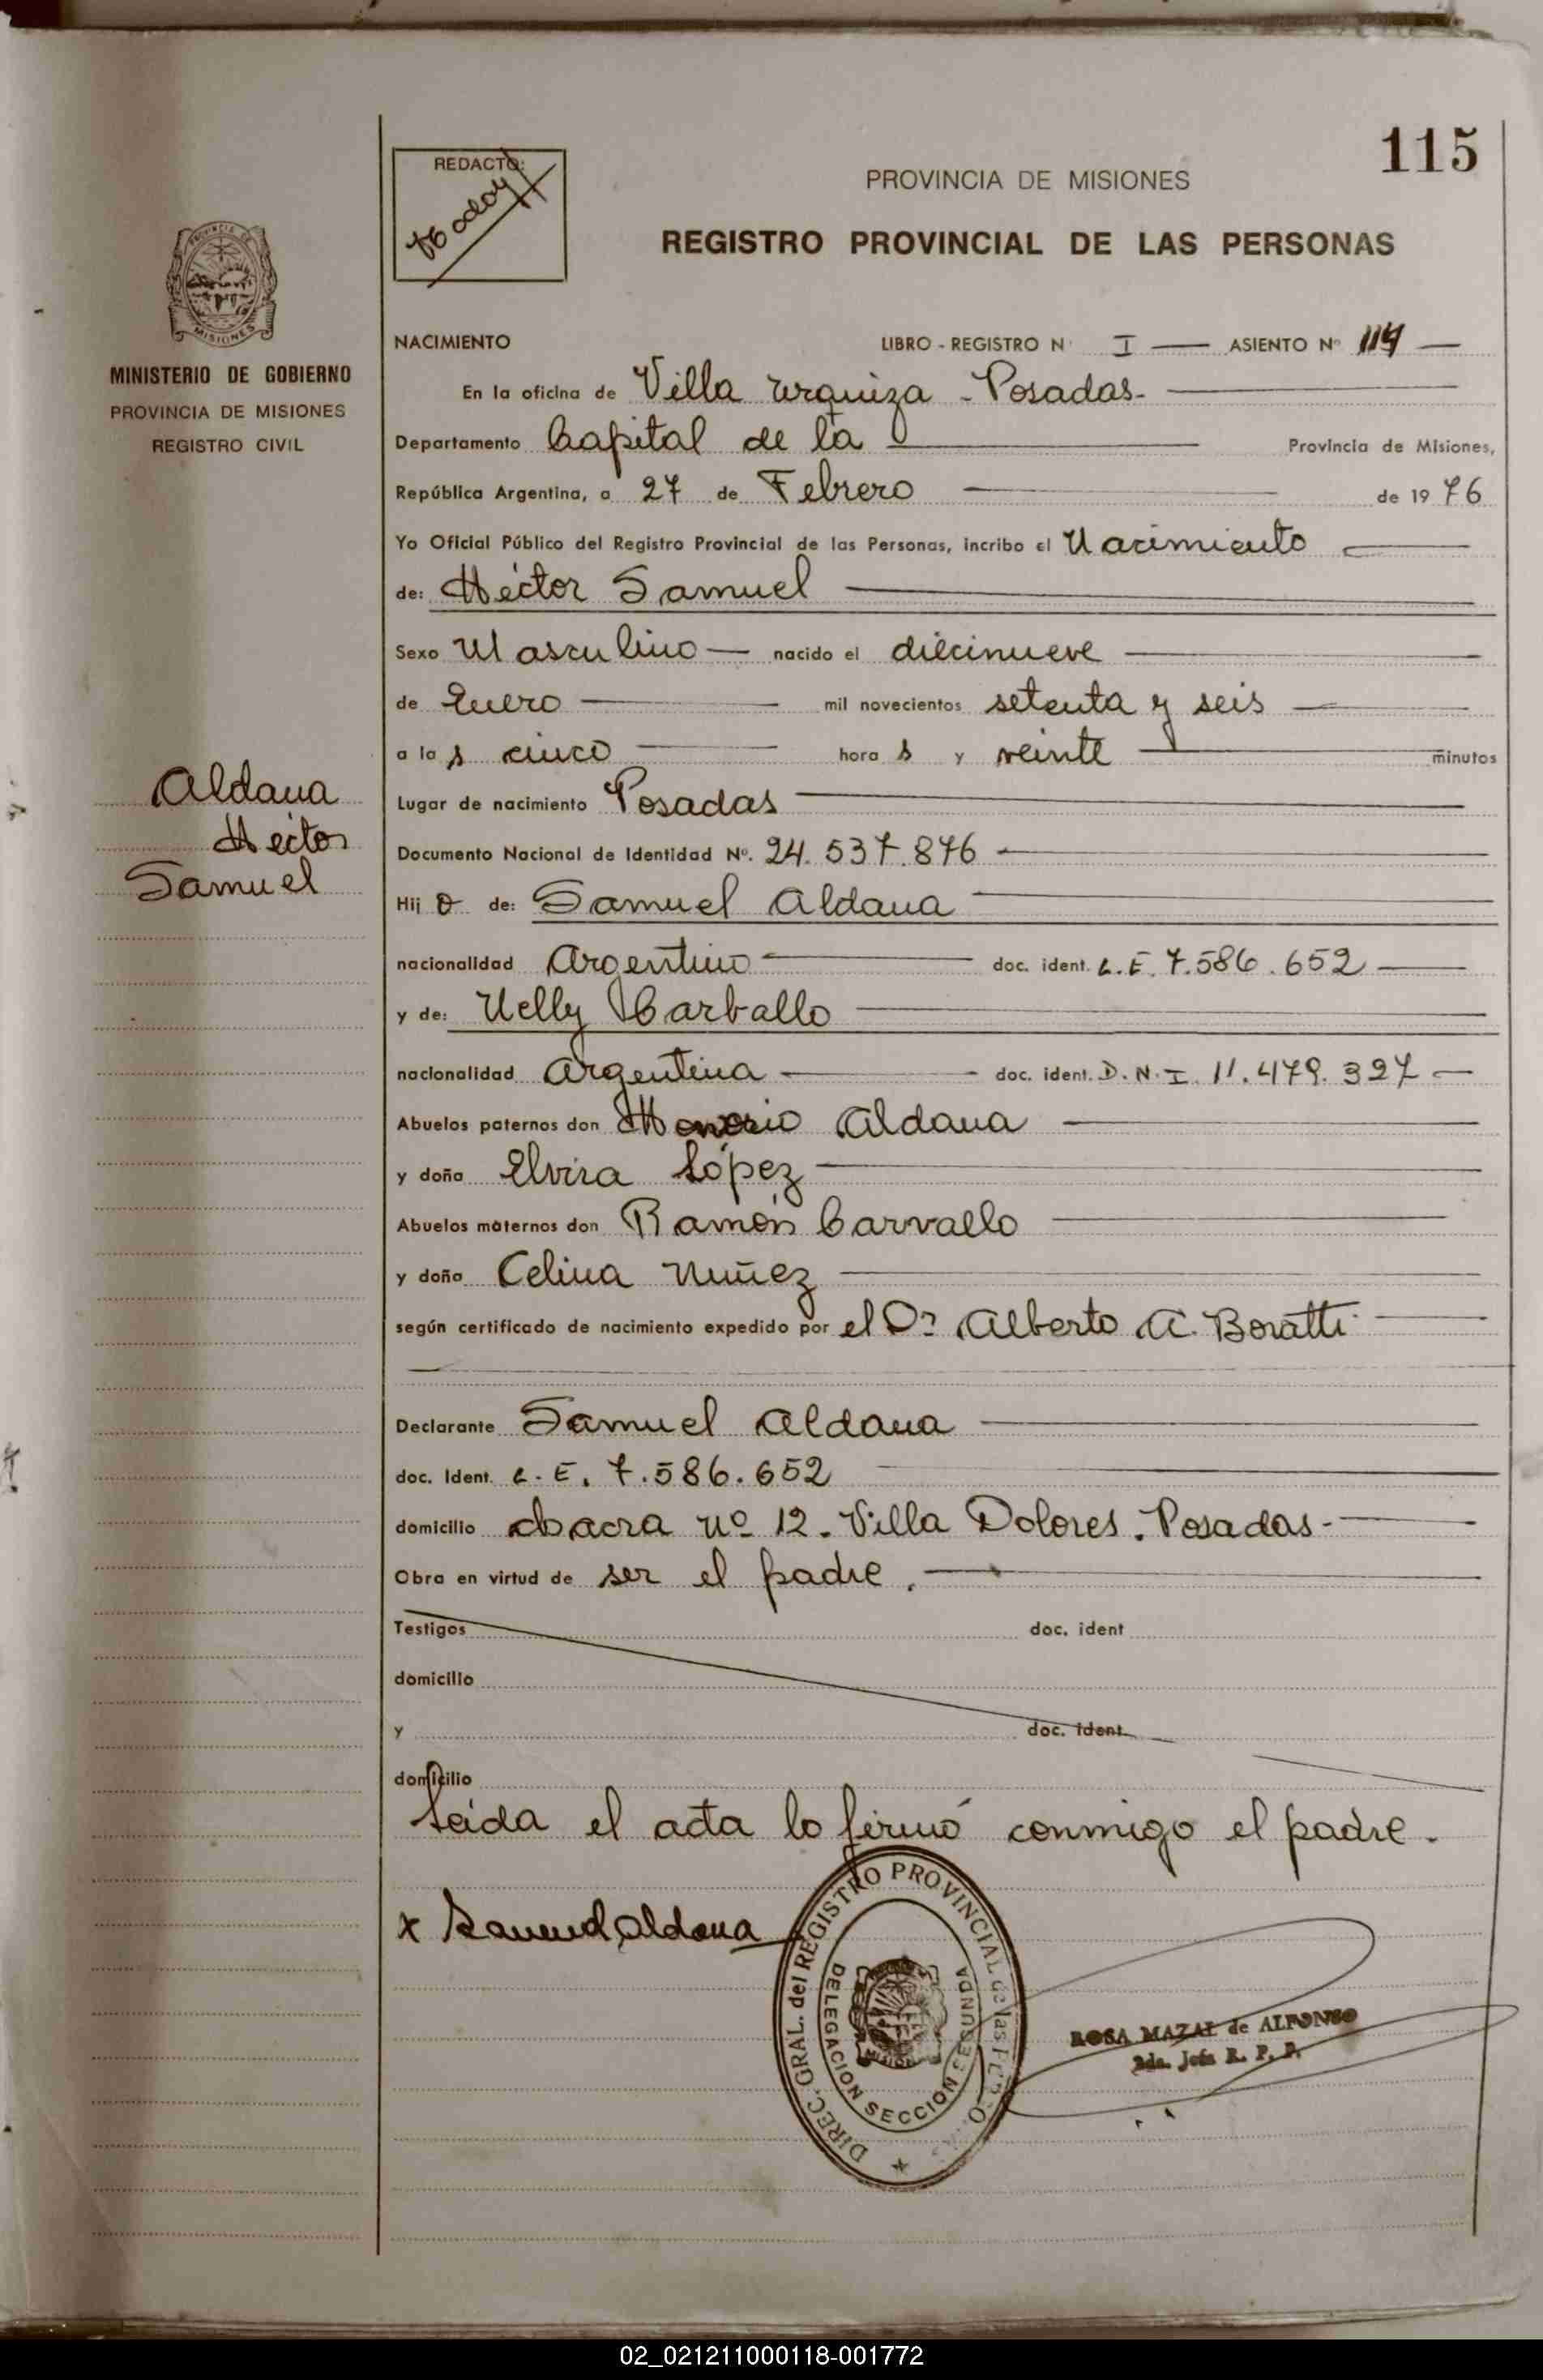 115
REDACTO:
PROVINCIA DE MISIONES
REGISTRO PROVINCIAL DE LAS PERSONAS
MISIONES
MINISTERIO DE GOBIERNO
PROVINCIA DE MISIONES
REGISTRO CIVIL
NACIMIENTO LIBRO - REGISTRO N° I ASIENTO N°
En la oficina de Villa Urquiza - Posadas.
Departamento Capital de la Provincia de Misiones,
República Argentina, a 27 de Febrero de 1976
Yo Oficial Público del Registro Provincial de las Personas, incribo el Nacimiento
de: Héctor Samuel
Sexo Masculino nacido el diecinueve
de Enero mil novecientos setenta y seis
a las cinco horas y veinte minutos
Lugar de nacimiento Posadas
Documento Nacional de Identidad N°. 24.537.876
Hijo de: Samuel Aldana
nacionalidad Argentino doc. ident. L.E. 7.586.652
y de: Nelly Carballo
nacionalidad Argentina doc. ident. D.N.I. 11.479.327
Abuelos paternos don Honorio Aldana
y doña Elvira López
Abuelos maternos don Ramón Carvallo
y doña Celina Nuñez
según certificado de nacimiento expedido por el Dr Alberto A. Boratti
Declarante Samuel Aldana
doc. Ident. L.E. 7.586.652
domicilio chacra nº 12. Villa Dolores. Posadas.
Obra en virtud de ser el padre.
Testigos doc. ident
domicilio
y doc. ident.
domicilio
Leída el acta lo firmó conmigo el padre.
x Samuel Aldana
DIREC. GRAL. del REGISTRO PROVINCIAL de las
DELEGACION SECCION SEGUNDA
ROSA MAZAL de ALFONSO
2da. Jefa R. P. P.
Aldana
Héctor
Samuel
02_021211000118-001772